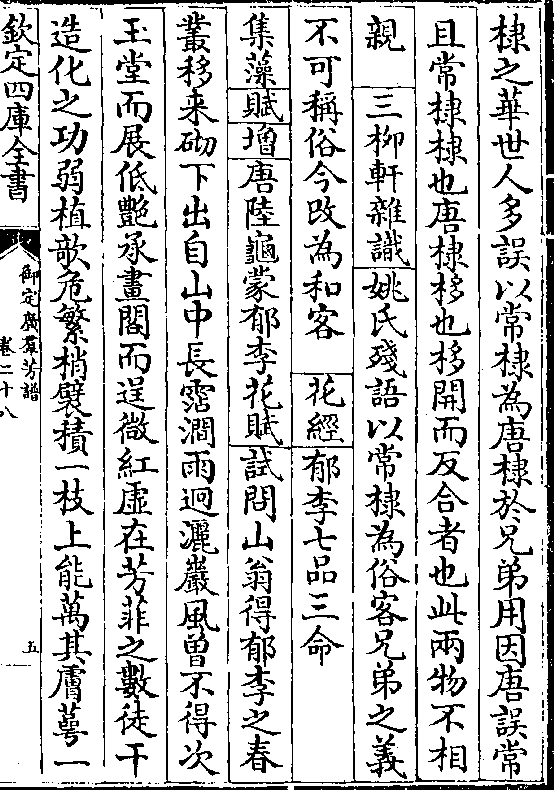 棣之華世人多誤以常棣為唐棣於兄弟用因唐誤常
且常棣棣也唐棣栘也栘開而反合者也此兩物不相
親　三柳軒雜識　姚氏殘語以常棣為俗客兄弟之義
不可稱俗今改為和客　花經　郁李七品三命
集藻　賦　增　唐陸龜蒙郁李花賦　試問山翁得郁李之春
叢移來砌下出自山中長霑澗雨迥灑巖風曾不得次
玉堂而展低艷承畫閣而逞微紅虛在芳菲之數徒干
造化之功弱植欹危繁梢襞積一枝上能萬其膚萼一
欽定四庫全書
御定廣羣芳譜
卷二十八
五